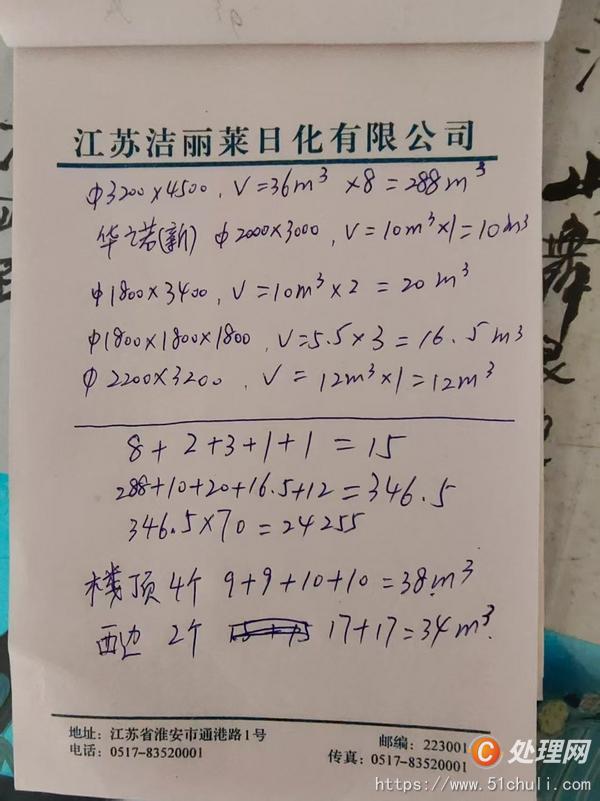 江苏洁丽莱日化有限公司
φ3200×4500, V=36m³ ×8=288m³
华之诺(新) φ2000×3000, V=10m³×1=10m³
φ1800×3400, V=10m³×2=20m³
φ1800×1800×1800, V=5.5×3=16.5m³
φ2200×3200, V=12m³×1=12m³
8+2+3+1+1=15
288+10+20+16.5+12=346.5
346.5×70=24255
楼顶 4个 9+9+10+10=38m³
西边 2个 17+17=34m³
地址: 江苏省淮安市通港路1号 邮编: 223001
电话: 0517-83520001 传真: 0517-83520001
C 处理网
https://www.51chuli.com